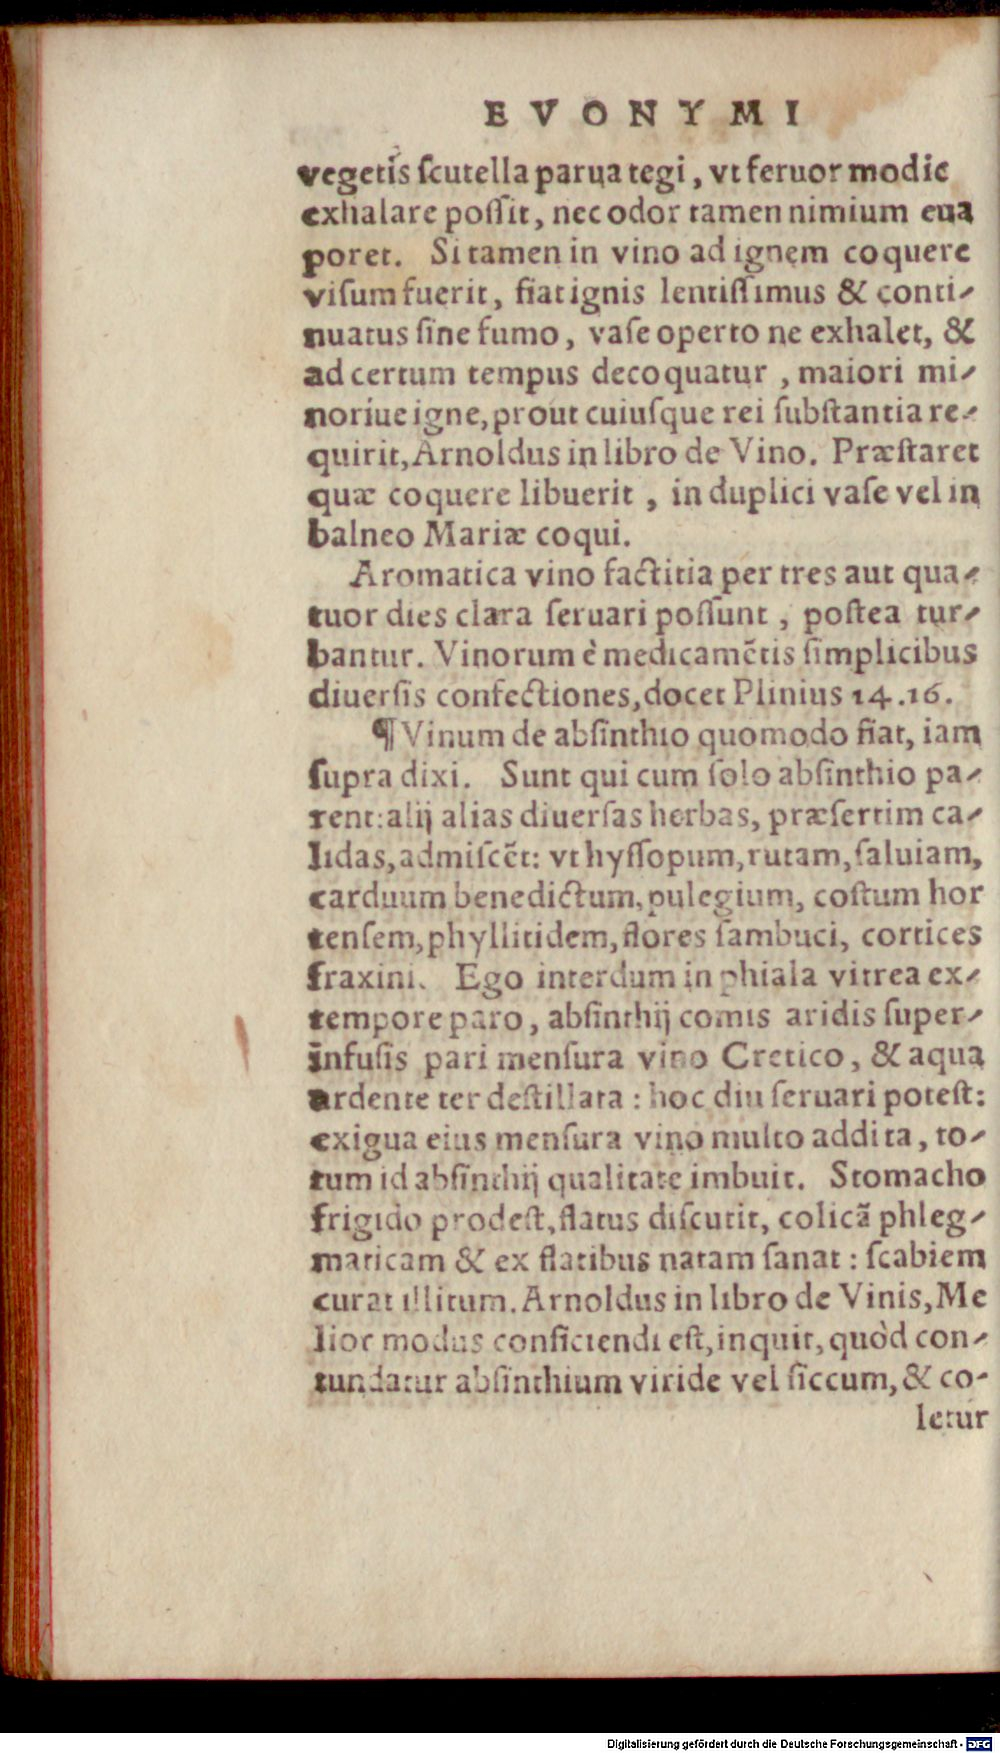 EVONYMI
vegetis ſcutella parua tegi, vt feruor modic
exhalare poſſit, nec odor tamen nimium eua
poret. Si tamen in vino ad ignem coquere
viſum fuerit, fiat ignis lentiſſimus & conti-
nuatus ſine fumo, vaſe operto ne exhalet, &
ad certum tempus decoquatur, maiori mi-
noriue igne, prout cuiuſque rei ſubſtantia re-
quirit, Arnoldus in libro de Vino. Præſtaret
quæ coquere libuerit, in duplici vaſe vel in
balneo Mariæ coqui.
Aromatica vino factitia per tres aut qua-
tuor dies clara ſeruari poſſunt, poſtea tur-
bantur. Vinorum è medicamẽtis ſimplicibus
diuerſis confectiones, docet Plinius 14.16.
¶ Vinum de abſinthio quomodo fiat, iam
ſupra dixi. Sunt qui cum ſolo abſinthio pa-
rent: alij alias diuerſas herbas, præſertim ca-
lidas, admiſcẽt: vt hyſſopum, rutam, ſaluiam,
carduum benedictum, pulegium, coſtum hor
tenſem, phyllitidem, flores ſambuci, cortices
fraxini. Ego interdum in phiala vitrea ex-
tempore paro, abſinthij comis aridis ſuper-
infuſis pari menſura vino Cretico, & aqua
ardente ter deſtillata: hoc diu ſeruari poteſt:
exigua eius menſura vino multo addita, to-
tum id abſinthij qualitate imbuit. Stomacho
frigido prodeſt, flatus diſcutit, colicã phleg-
maticam & ex flatibus natam ſanat: ſcabiem
curat illitum. Arnoldus in libro de Vinis, Me
lior modus conficiendi eſt, inquit, quòd con-
tundatur abſinthium viride vel ſiccum, & co-
letur
Digitalisierung gefördert durch die Deutsche Forschungsgemeinschaft - DFG